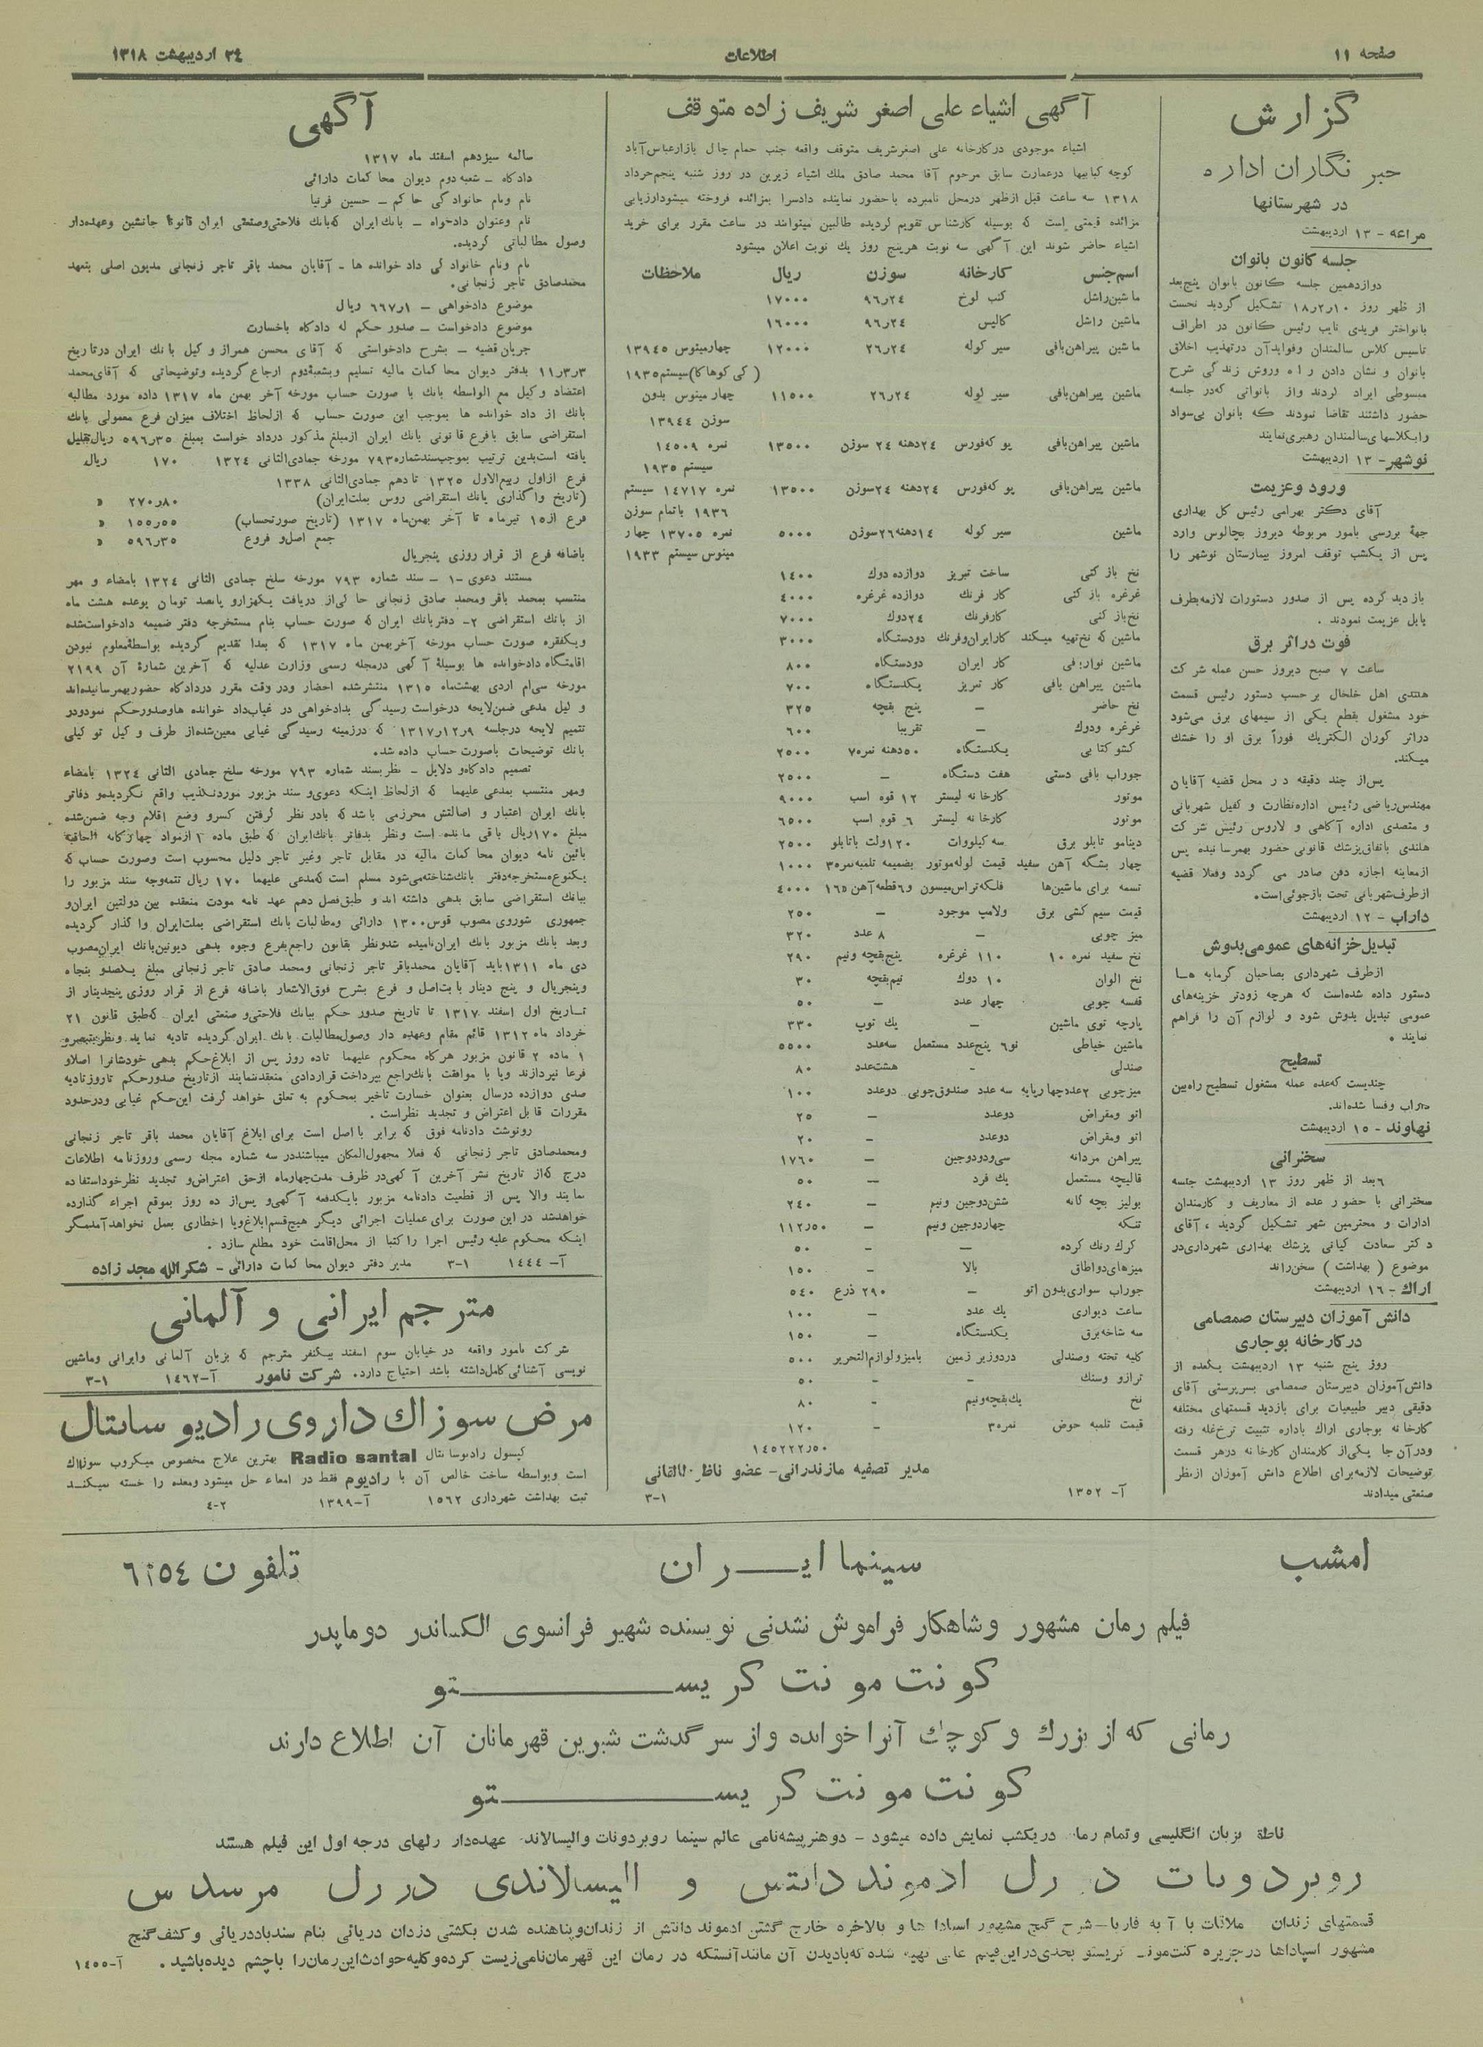 صفحه ۱۱
اطلاعات
۲۴ اردیبهشت ۱۳۱۸
گزارش
خبر نگاران اداره
در شهرستانها
مراغه - ۱۳ اردیبهشت
جلسه کانون بانوان
دوازدهمین جلسه کانون بانوان پنجبعد
از ظهر روز ۱۸ر۲ر۱۰ تشکیل گردید نخست
بانواختر فریدی نایب رئیس کانون در اطراف
تاسیس کلاس سالمندان وفوایدآن درتهذیب اخلاق
بانوان و نشان دادن راه وروش زندگی شرح
مبسوطی ایراد کردند واز بانوانی که‌در جلسه
حضور داشتند تقاضا نمودند که بانوان بی‌سواد
وابکلاسهای‌سالمندان رهبری‌نمایند
نوشهر- ۱۳ اردیبهشت
ورود وعزیمت
آقای دکتر بهرامی رئیس کل بهداری
جهة بررسی بامور مربوطه دیروز بچالوس وارد
پس از یکشب توقف امروز بیمارستان نوشهر را
بازدید کرده پس از صدور دستورات لازمه‌بطرف
بابل عزیمت نمودند .
فوت دراثر برق
ساعت ۷ صبح دیروز حسن عمله شرکت
هلندی اهل خلخال بر حسب دستور رئیس قسمت
خود مشغول بقطع یکی از سیمهای برق می‌شود
دراثر کوران الکتریک فوراً برق او را خشک
میکند.
پس‌از چند دقیقه در محل قضیه آقایان
مهندس‌ریاضی رئیس اداره‌نظارت و کفیل شهربانی
و متصدی اداره آگاهی و لاروس رئیس شرکت
هلندی باتفاق‌پزشک قانونی حضور بهمرسانیده پس
ازمعاینه اجازه دفن صادر می گردد وفعلا قضیه
ازطرف‌شهربانی تحت بازجوئی‌است.
داراب - ۱۲ اردیبهشت
تبدیل‌خزانه‌های عمومی‌بدوش
ازطرف شهرداری بصاحبان گرمابه ها
دستور داده شده‌است که هرچه زودتر خزینه‌های
عمومی تبدیل بدوش شود و لوازم آن را فراهم
نمایند .
تسطیح
چندیست که‌عده عمله مشغول تسطیح راه‌بین
داراب وفسا شده‌اند.
نهاوند - ۱۵ اردیبهشت
سخنرانی
۶بعد از ظهر روز ۱۳ اردیبهشت جلسه
سخنرانی با حضور عده از معاریف و کارمندان
ادارات و محترمین شهر تشکیل گردید ، آقای
دکتر سعادت کیانی پزشک بهداری شهرداری‌در
موضوع ( بهداشت ) سخن‌راند
اراک - ۱۶ اردیبهشت
دانش آموزان دبیرستان صمصامی
درکارخانه بوجاری
روز پنج شنبه ۱۳ اردیبهشت یکعده از
دانش‌آموزان دبیرستان صمصامی بسرپرستی آقای
دقیقی دبیر طبیعیات برای بازدید قسمتهای مختلفه
کارخانه بوجاری اراک باداره تثبیت نرخ‌غله رفته
ودرآن‌جا یکی‌از کارمندان کارخانه درهر قسمت
توضیحات لازمه‌برای اطلاع دانش آموزان ازنظر
صنعتی میدادند
آگهی اشیاء علی اصغر شریف زاده متوقف
اشیاء موجودی درکارخانه علی اصغرشریف متوقف واقعه جنب حمام چال بازارعباس‌آباد
کوچه کبابیها درعمارت سابق مرحوم آقا محمد صادق ملک اشیاء زیرین در روز شنبه پنجم‌خرداد
۱۳۱۸ سه ساعت قبل ازظهر درمحل نامبرده باحضور نماینده دادسرا بمزائده فروخته میشودارزیابی
مزائده قیمتی است که بوسیله کارشناس تقویم گردیده طالبین میتوانند در ساعت مقرر برای خرید
اشیاء حاضر شوند این آگهی سه نوبت هرپنج روز یک نوبت اعلان میشود
اسم‌جنس کارخانه سوزن ریال ملاحظات
ماشین‌راشل کنب لوخ ۲۴ر۹۶ ۱۷۰۰۰
ماشین راشل کالیس ۲۴ر۹۶ ۱۶۰۰۰
ماشین پیراهن‌بافی سیر کوله ۲۴ر۲۶ ۱۲۰۰۰ چهارمینوس ۱۳۹۴۵
(کی کوهاکا)سیستم۱۹۳۵
ماشین پیراهن‌بافی سیر لوله ۲۴ر۲۶ ۱۱۵۰۰ چهارمینوس بدون
سوزن ۱۳۹۴۴
ماشین پیراهن‌بافی یو که‌فورس ۲۴دهنه ۲۴ سوزن ۱۳۵۰۰ نمره ۱۴۵۰۹
سیستم ۱۹۳۵
ماشین پیراهن‌بافی یو که‌فورس ۲۴دهنه ۲۴سوزن ۱۳۵۰۰ نمره ۱۴۷۱۷ سیستم
۱۹۳۶ باتمام سوزن
ماشین سیر کوله ۱۴دهنه۲۶سوزن ۵۰۰۰ نمره ۱۳۷۰۵ چهار
مینوس سیستم ۱۹۳۳
نخ بازکنی ساخت تبریز دوازده دوک ۱۴۰۰
غرغره بازکنی کار فرنک دوازده غرغره ۴۰۰۰
نخ‌بازکنی کارفرنک ۲۴دوک ۷۰۰۰
ماشین که نخ‌تهیه میکند کارایران‌وفرنک دودستگاه ۳۰۰۰
ماشین نواربافی کار ایران دودستگاه ۸۰۰
ماشین پیراهن بافی کار تبریز یکدستگاه ۷۰۰
نخ حاضر – پنج بقچه ۳۲۵
غرغره ودوک – تقریبا ۶۰۰
کشو کتابی یکدستگاه ۵۰دهنه نمره۷ ۲۵۰۰
جوراب بافی دستی هفت دستگاه – ۲۵۰۰
موتور کارخانه لیستر ۱۲ قوه اسب ۹۰۰۰
موتور کارخانه لیستر ۶ قوه اسب ۶۵۰۰
دینامو تابلو برق سه کیلووات ۱۲۰ولت باتابلو ۲۵۰۰
چهار بشگه آهن سفید قیمت لوله‌موتور بضمیمه تلمبه‌نمره۳ ۱۰۰۰
تسمه برای ماشین‌ها فلکه‌تراس‌میسون و۶قطعه‌آهن ۱۶۵ ۴۰۰۰
قیمت سیم کشی برق ولامپ موجود – ۲۵۰
میز چوبی – ۸ عدد ۳۲۰
نخ سفید نمره ۱۰ ۱۱۰ غرغره پنج‌بقچه ونیم ۲۹۰
نخ الوان ۱۰ دوک نیم‌بقچه ۳۰
قفسه چوبی چهار عدد – ۵۰
پارچه توی ماشین – یک توپ ۳۳۰
ماشین خیاطی نو۶ پنج‌عدد مستعمل سه‌عدد ۵۵۰۰
صندلی - هشت‌عدد ۸۰
میزچوبی ۲عددچهارپایه سه عدد صندوق‌چوبی دوعدد ۱۰۰
اتو ومقراض دوعدد – ۲۵
اتو ومقراض دوعدد – ۲۰
پیراهن مردانه سی‌ودودوجین – ۱۷۶۰
قالیچه مستعمل یک فرد – ۵۰
بولیز بچه گانه شش‌دوجین ونیم – ۲۴۰
تنکه چهاردوجین ونیم – ۵۰ر۱۱۲
کرک رنک کرده – - ۵۰
میزهای‌دواطاق بالا – ۱۵۰
جوراب سواری‌بدون اتو – ۲۹۰ ذرع ۵۴۰
ساعت دیواری یک عدد – ۱۰۰
سه شاخه‌برق یکدستگاه – ۱۵۰
کلیه تخته وصندلی دردوزیر زمین بامیزولوازم‌التحریر ۵۰۰
ترازو وسنک - - ۵۰
نخ یک‌بقچه‌ونیم - ۸۰
قیمت تلمبه حوض نمره۳ - ۱۲۰
۵۰ر۱۴۵۲۲۲
مدیر تصفیه مازندرانی- عضو ناظر طالقانی
آ- ۱۳۵۲ ۱-۳
آگهی
سالمه سیزدهم اسفند ماه ۱۳۱۷
دادگاه – شعبه‌دوم دیوان محاکمات دارائی
نام ونام خانوادگی حاکم – حسین فرنیا
نام وعنوان دادخواه – بانک ایران که‌بانک فلاحتی‌وصنعتی ایران قانوناً جانشین وعهده‌دار
وصول مطالباتی گردیده.
نام ونام خانوادگی داد خوانده ها - آقایان محمد باقر تاجر زنجانی مدیون اصلی بتعهد
محمدصادق تاجر زنجانی.
موضوع دادخواهی – ۱ر۶۶۷ ریال
موضوع دادخواست – صدور حکم له دادگاه باخسارت
جریان قضیه – بشرح دادخواستی که آقای محسن همراز وکیل بانک ایران درتاریخ
۳ر۳ر۱۱ بدفتر دیوان محاکمات مالیه تسلیم وبشعبهٔ‌دوم ارجاع گردیده وتوضیحاتی که آقای‌محمد
اعتضاد وکیل مع الواسطه بانک با صورت حساب مورخه آخر بهمن ماه ۱۳۱۷ داده مورد مطالبه
بانک از داد خوانده ها بموجب این صورت حساب که ازلحاظ اختلاف میزان فرع معمولی بانک
استقراضی سابق بافرع قانونی بانک ایران ازمبلغ مذکور درداد خواست بمبلغ ۳۵ر۵۹۶ ریال‌تقلیل
یافته است‌بدین ترتیب بموجب‌سندشماره ۷۹۳ مورخه جمادی‌الثانی ۱۳۲۴ ۱۷۰ ریال
فرع ازاول ربیع‌الاول ۱۳۲۵ تادهم جمادی‌الثانی ۱۳۳۸
(تاریخ واگذاری بانک استقراضی روس بملت‌ایران) ۸۰ر۲۷۰ »
فرع از۱۵ تیرماه تا آخر بهمن‌ماه ۱۳۱۷ (تاریخ صورتحساب) ۵۵ر۱۵۵ »
جمع اصل‌و فروع ۳۵ر۵۹۶ »
باضافه فرع از قرار روزی پنجریال
مستند دعوی -۱ – سند شماره ۷۹۳ مورخه سلخ جمادی الثانی ۱۳۲۴ بامضاء و مهر
منتسب بمحمد باقر ومحمد صادق زنجانی حاکی‌از دریافت یکهزارو پانصد تومان بوعده هشت ماه
از بانک استقراضی ۲- دفتربانک ایران که صورت حساب بنام مستخرجه دفتر ضمیمه دادخواست‌شده
ویکفقره صورت حساب مورخه آخربهمن ماه ۱۳۱۷ که بعدا تقدیم گردیده بواسطهٔ‌معلوم نبودن
اقامتگاه دادخوانده ها بوسیلهٔ آگهی درمجله رسمی وزارت عدلیه که آخرین شمارهٔ آن ۲۱۹۹
مورخه سی‌ام اردی بهشت‌ماه ۱۳۱۵ منتشرشده احضار ودر وقت مقرر دردادگاه حضوربهمرسانیده‌اند
و کیل مدعی ضمن‌لایحه درخواست رسیدگی بدادخواهی در غیاب‌داد خوانده هاوصدورحکم نمودودر
تتمیم لایحه درجلسه ۹ر۱۲ر۱۳۱۷ که درزمینه رسیدگی غیابی معین‌شده‌از طرف وکیل توکیلی
بانک توضیحات باصورت حساب داده شد.
تصمیم دادگاه‌و دلایل – نظربسند شماره ۷۹۳ مورخه سلخ جمادی الثانی ۱۳۲۴ بامضاء
ومهر منتسب بمدعی علیهما که ازلحاظ اینکه دعوی‌و سند مزبور موردتکذیب واقع نگردیده‌و دفاتر
بانک ایران اعتبار و اصالتش محرزمی باشدکه بادر نظر گرفتن کسرو وضع اقلام وجه ضمن‌شده
مبلغ ۱۷۰ریال باقی مانده است ونظر بدفاتر بانک‌ایران که طبق ماده ۱ ازمواد چهارگانه الحاقیهٔ
بائین نامه دیوان محاکمات مالیه در مقابل تاجر وغیر تاجر دلیل محسوب است وصورت حساب که
یکنوع‌مستخرجه‌دفتر بانک‌شناخته‌می‌شود مسلم است‌که‌مدعی علیهما ۱۷۰ ریال تتمه‌وجه سند مزبور را
ببانک استقراضی سابق بدهی داشته اند و طبق‌فصل دهم عهد نامه مودت منعقده بین دولتین ایران‌و
جمهوری شوروی مصوب قوس۱۳۰۰ دارائی ومطالبات بانک استقراضی بملت‌ایران واگذار گردیده
وبعد بانک مزبور بانک ایران‌نامیده شدونظر بقانون راجع‌بفرع وجوه بدهی دیونین‌بانک ایران‌مصوب
دی ماه ۱۳۱۱باید آقایان محمدباقر تاجر زنجانی ومحمد صادق تاجر زنجانی مبلغ یکصدو پنجاه
وپنجریال و پنج دینار بابت‌اصل و فرع بشرح فوق‌الاشعار باضافه فرع از قرار روزی پنجدینار از
تاریخ اول اسفند ۱۳۱۷ تا تاریخ صدور حکم ببانک فلاحتی‌و صنعتی ایران که‌طبق قانون ۲۱
خرداد ماه ۱۳۱۲ قائم مقام وعهده دار وصول‌مطالبات بانک ایران‌گردیده تادیه نماید ونظربتبصره
۱ ماده ۲ قانون مزبور هرگاه محکوم علیهما تاده روز پس از ابلاغ‌حکم بدهی خودشانرا اصلاو
فرعا نپردازند ویا با موافقت بانک‌راجع بپرداخت قراردادی منعقدننمایند ازتاریخ صدورحکم تاروزتادیه
صدی دوازده درسال بعنوان خسارت تاخیر بمحکوم به تعلق خواهد گرفت این‌حکم غیابی ودرحدود
مقررات قابل اعتراض و تجدید نظراست.
رونوشت دادنامه فوق که برابر بااصل است برای ابلاغ آقایان محمد باقر تاجر زنجانی
ومحمدصادق تاجر زنجانی که فعلا مجهول‌المکان میباشنددر سه شماره مجله رسمی وروزنامه اطلاعات
درج که‌از تاریخ نشر آخرین آگهی‌در ظرف مدت‌چهارماه ازحق اعتراض‌و تجدید نظرخوداستفاده
نمایند والا پس از قطعیت دادنامه مزبور بایکدفعه آگهی‌و پس‌از ده روز بموقع اجراء گذارده
خواهدشد در این صورت برای عملیات اجرائی دیگر هیچ‌قسم‌ابلاغ‌ویا اخطاری بعمل نخواهدآمدمگر
اینکه محکوم علیه رئیس اجرا را کتباً از محل‌اقامت خود مطلع سازد .
آ- ۱۴۴۴ ۱-۳ مدیر دفتر دیوان محاکمات دارائی - شکرالله مجد زاده
مترجم ایرانی و آلمانی
شرکت نامور واقعه در خیابان سوم اسفند بیکنفر مترجم که بزبان آلمانی وایرانی وماشین
نویسی آشنائی کامل‌داشته باشد احتیاج دارد. شرکت نامور آ-۱۴۶۲ ۱-۳
مرض سوزاک داروی رادیو سانتال
کپسول رادیوسانتال Radio santal بهترین علاج مخصوص میکروب سوزاک
است وبواسطه ساخت خالص آن با رادیوم فقط در امعاء حل میشود ومعده را خسته نمیکند
ثبت بهداشت شهرداری ۱۵۶۲ آ-۱۳۹۹ ۲-۴
امشب
سینما ایران
تلفون
فیلم رمان مشهور وشاهکار فراموش نشدنی نویسنده شهیر فرانسوی الکساندر دوماپدر
کونت مونت کریستو
رمانی که از بزرک و کوچک آنرا خوانده واز سرگذشت شیرین قهرمانان آن اطلاع دارند
کونت مونت کریستو
ناطق بزبان انگلیسی وتمام رمان دریکشب نمایش داده میشود - دوهنرپیشه‌نامی عالم سینما روبردونات والیسالاندی عهده‌دار رلهای درجه اول این فیلم هستند
روبردونات در رل ادمونددانتس و الیسالاندی دررل مرسدس
قسمتهای زندان ملاقات با آبه فاریا–شرح گنج مشهور اسپادا ها و بالاخره خارج گشتن ادموند دانتس از زندان‌وپناهنده شدن بکشتی دزدان دریائی بنام سندباددریائی وکشف‌گنج
مشهور اسپاداها درجزیره کنت‌مونت کریستو بحدی‌دراین‌فیلم عالی تهیه شده که‌بادیدن آن مانندآنستکه در رمان این قهرمان‌نامی‌زیست کرده‌وکلیه‌حوادث‌این‌رمان‌را باچشم دیده‌باشید . آ-۱۴۵۵